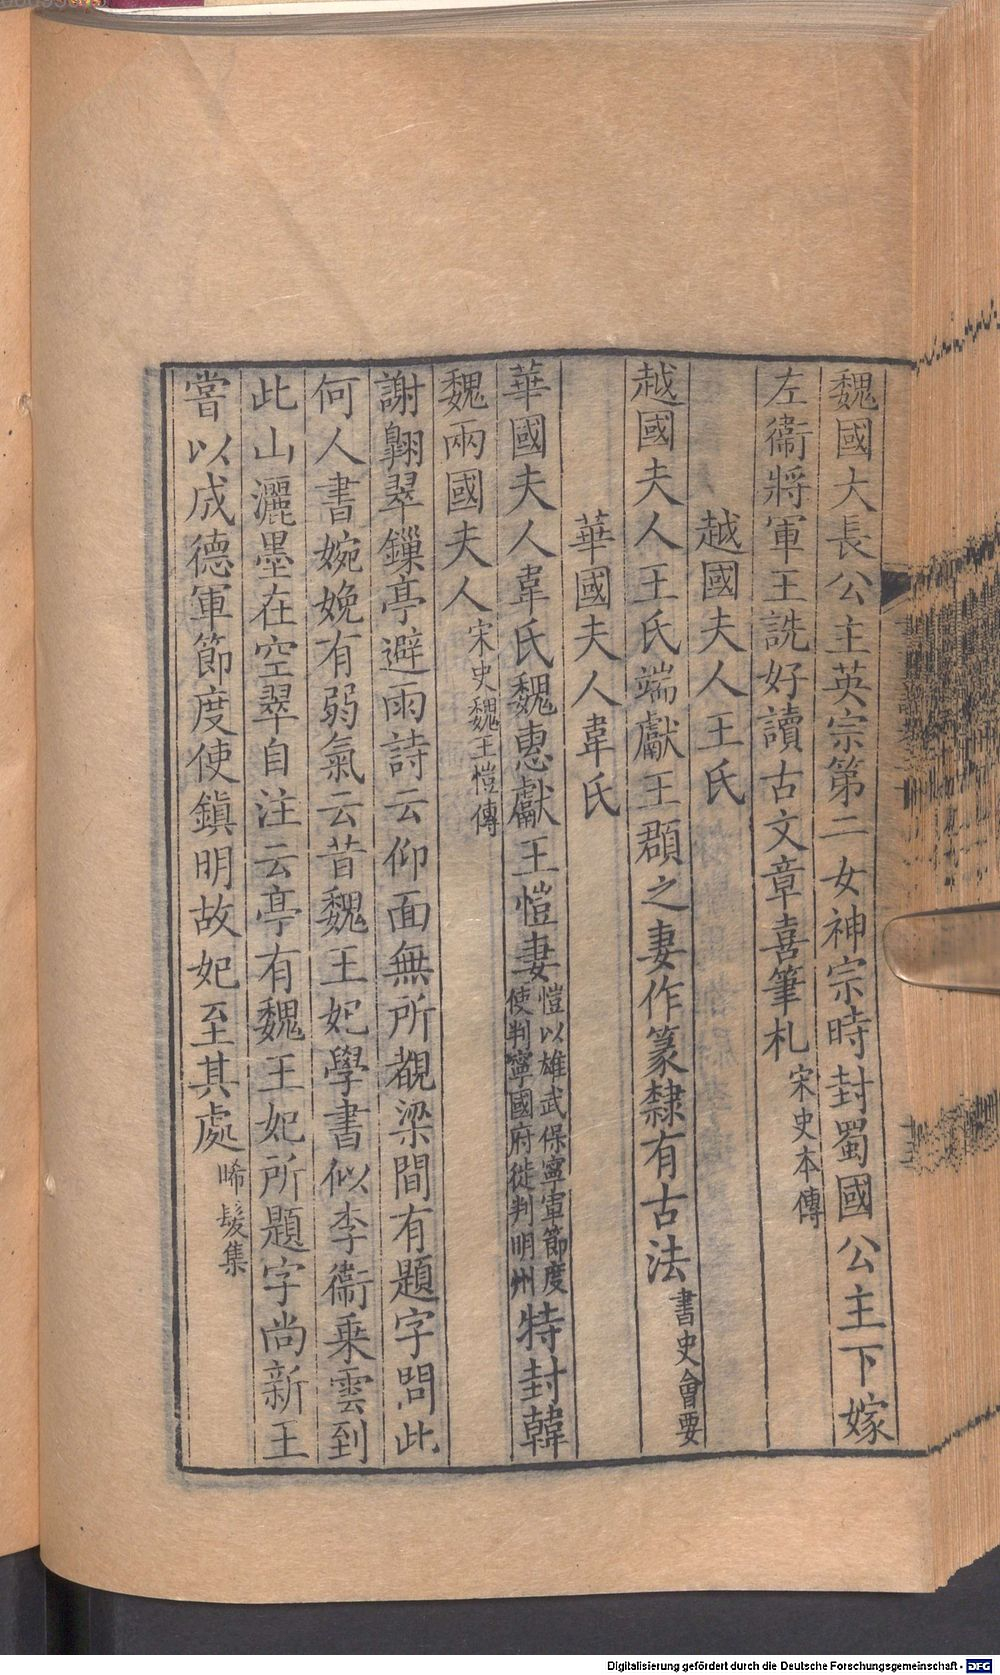 魏國大長公主英宗第二女神宗時封蜀國公主下嫁
左衞將軍王詵好讀古文章喜筆札宋史本傳
越國夫人王氏
越國夫人王氏端獻王頵之妻作篆隸有古法書史會要
華國夫人韋氏
華國夫人韋氏魏惠獻王愷妻愷以雄武保寧軍節度使判寧國府徙判明州特封韓
魏兩國夫人宋史魏王愷傳
謝翺翠鏁亭避雨詩云仰面無所覩梁間有題字問此
何人書婉娩有弱氣云昔魏王妃學書似李衞乗雲到
此山灑墨在空翠自注云亭有魏王妃所題字尚新王
嘗以成德軍節度使鎮明故妃至其處晞髮集
Digitalisierung gefördert durch die Deutsche Forschungsgemeinschaft - DFG